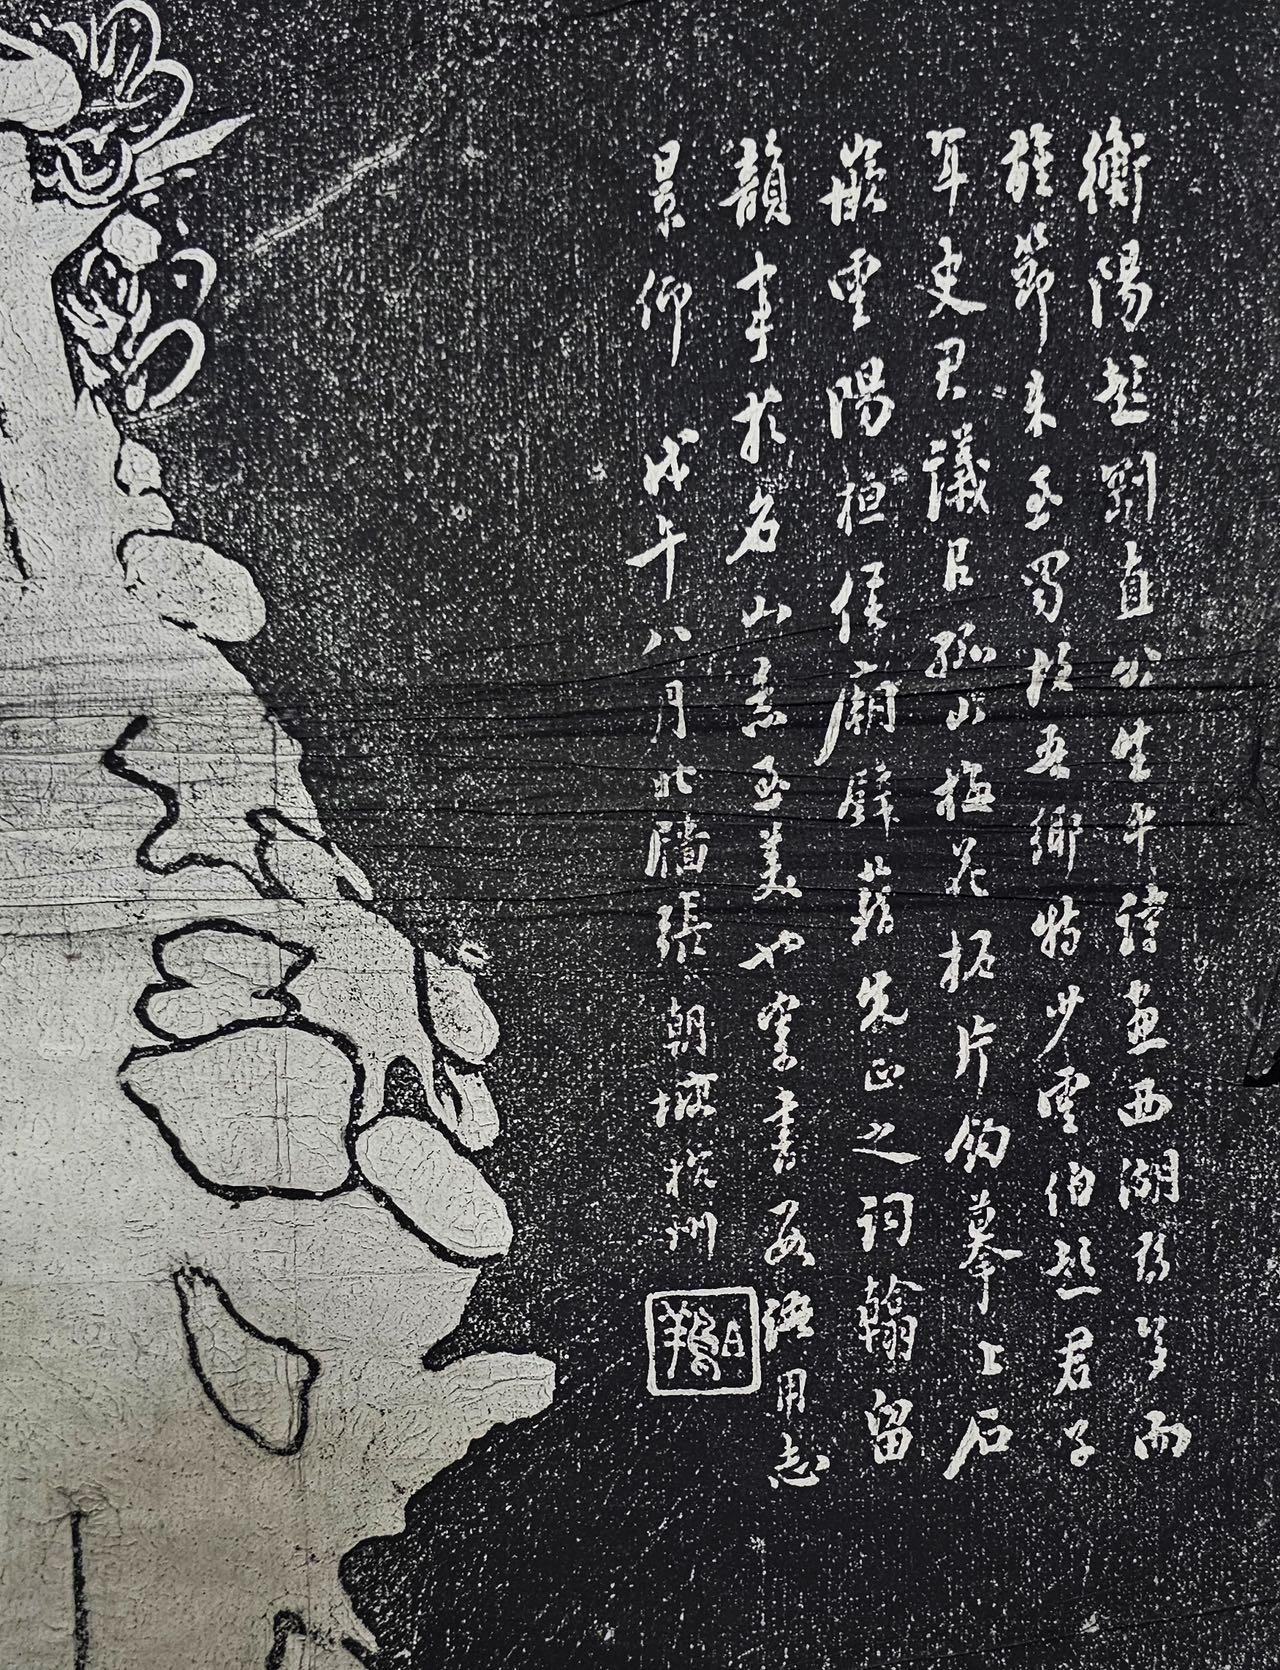 衡陽彭剛直公生平詩畫西湖爲多而
旌節未至蜀故吾鄉特少雲伯彭君子
年史君議臣孤山梅花拓片鈎摹上石
嵌雲陽桓侯廟壁藉先正之詞翰留
韻事於名山意至美也案書數語用志
景仰 戊午八月北牆張朝墉杭州